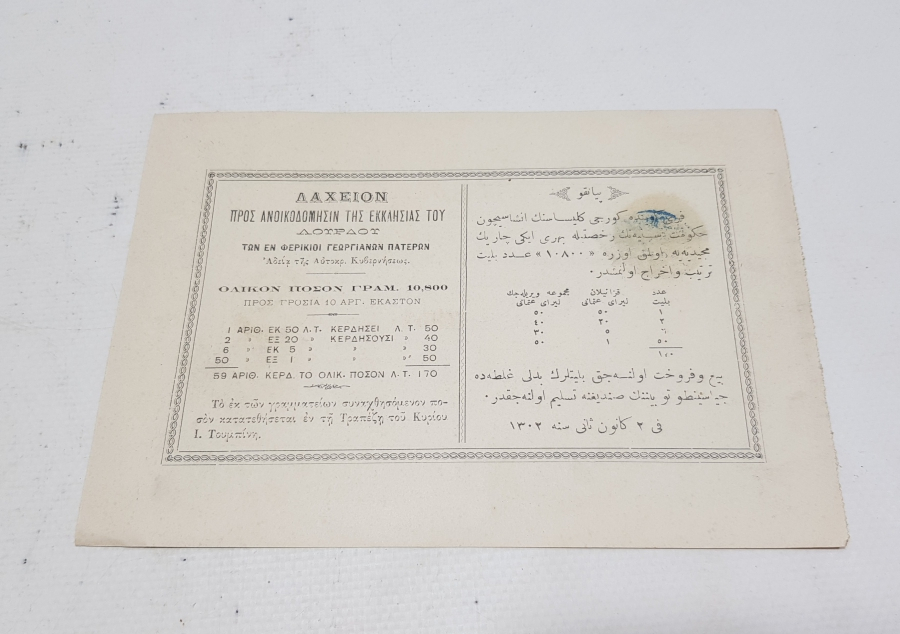 ΛΑΧΕΙΟΝ
ΠΡΟΣ ΑΝΟΙΚΟΔΟΜΗΣΙΝ ΤΗΣ ΕΚΚΛΗΣΙΑΣ ΤΟΥ
ΛΟΥΡΔΟΥ
ΤΩΝ ΕΝ ΦΕΡΙΚΙΟΙ ΓΕΩΡΓΙΑΝΩΝ ΠΑΤΕΡΩΝ
Ἀδείᾳ τῆς Αὐτοκρ. Κυβερνήσεως.
ΟΛΙΚΟΝ ΠΟΣΟΝ ΓΡΑΜ. 10,800
ΠΡΟΣ ΓΡΟΣΙΑ 10 ΑΡΓ. ΕΚΑΣΤΟΝ
1 ΑΡΙΘ. ΕΚ 50 Λ.Τ. ΚΕΡΔΗΣΕΙ Λ.Τ. 50
2 » ΕΞ 20 » ΚΕΡΔΗΣΟΥΣΙ » 40
6 » ΕΚ 5 » » 30
50 » ΕΞ 1 » » 50
59 ΑΡΙΘ. ΚΕΡΔ. ΤΟ ΟΛΙΚ. ΠΟΣΟΝ Λ.Τ. 170
Τὸ ἐκ τῶν γραμματείων συναχθησόμενον πο-
σὸν κατατεθήσεται ἐν τῇ Τραπέζῃ τοῦ Κυρίου
Ι. Τουμπίνη.
پیانقو
كورجی كلیساسنك انشاسیچون
رخصتیله بهری ایكی چاریك
مجیدیه‌یه اولمق اوزره «۱۰۸۰۰» عدد بلیت
ترتیب واخراج اولنمشدر.
عدد قزانیلان مجموعه ویریله‌جك
بلیت لیرای عثمانی لیرای عثمانی
۱ ۵۰ ۵۰
۲ ۲۰ ۴۰
۵ ۳۰
۵۰ ۱ ۵۰
بیع وفروخت اولنه‌جق بلیتلرك بدلی غلطه‌ده
صندیغنه تسلیم اولنه‌جقدر.
فی ۲ كانون ثانی سنه ۱۳۰۲